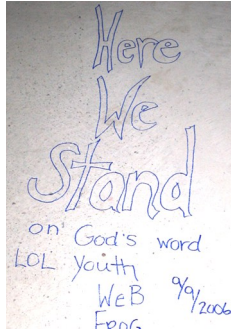 Here
We
Stand
on God's word
LOL Youth
WeB 9/9/2006
FROG